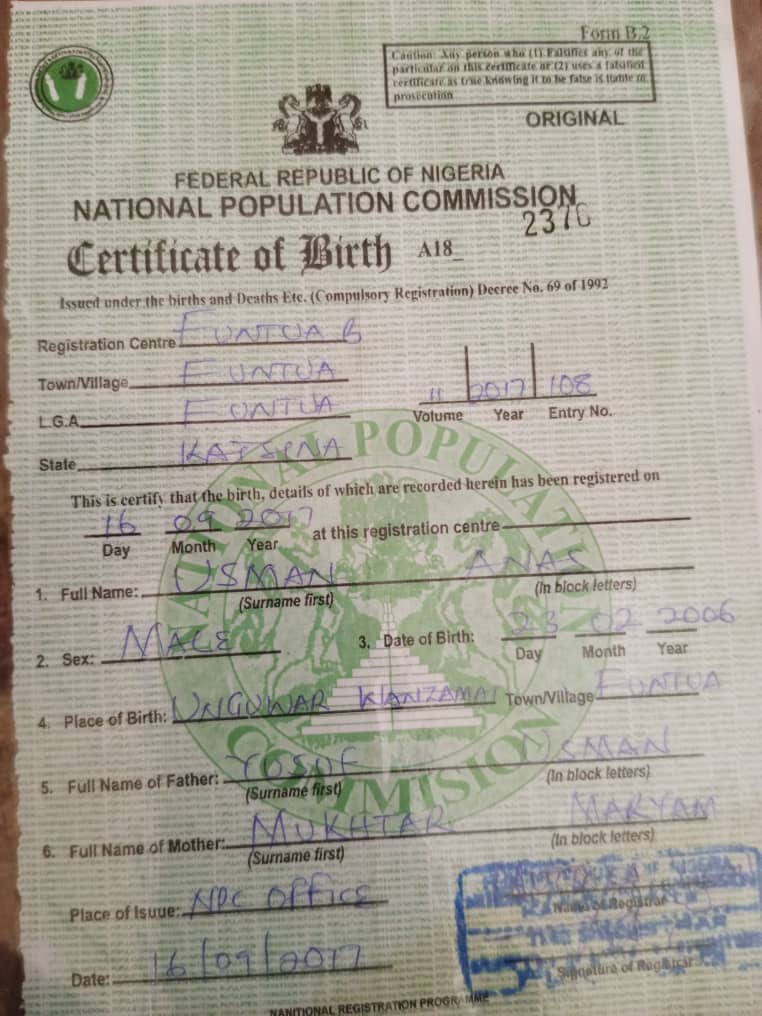 Form B.2
Caution: Any person who (1) Falsifies any of the
particular on this certificate or (2) uses a falsified
certificate as true knowing it to be false is liable to
prosecution
ORIGINAL
FEDERAL REPUBLIC OF NIGERIA
NATIONAL POPULATION COMMISSION
Certificate of Birth A18_
Issued under the births and Deaths Etc. (Compulsory Registration) Decree No. 69 of 1992
Registration Centre FUNTUA B
Town/Village FUNTUA
L.G.A. FUNTUA
State KATSINA
11 2017 108
Volume Year Entry No.
This is certify that the birth, details of which are recorded herein has been registered on
16 09 2017 at this registration centre
Day Month Year
1. Full Name: USMAN ANAS
(Surname first) (In block letters)
2. Sex: MALE 3. Date of Birth: 23 02 2006
Day Month Year
4. Place of Birth: UNGUWAR KANZAMAI Town/Village FUNTUA
5. Full Name of Father: YUSUF USMAN
(Surname first) (In block letters)
6. Full Name of Mother: MUKHTAR MARYAM
(Surname first) (In block letters)
Place of Isuue: NPC OFFICE
Name of Registrar
Date: 16/09/2017
Signature of Registrar
NANITIONAL REGISTRATION PROGRAMME
NATIONAL POPULATION COMMISSION